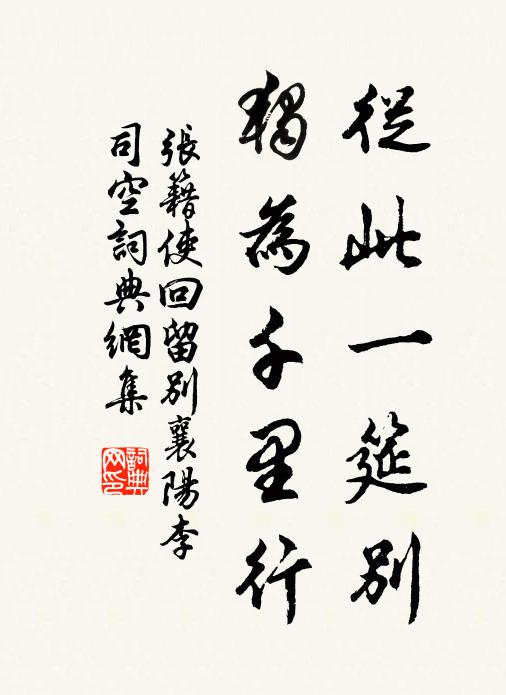 從此一筵別
獨為千里行
張籍使回留別襄陽李
司空詞典網集
詞典网印